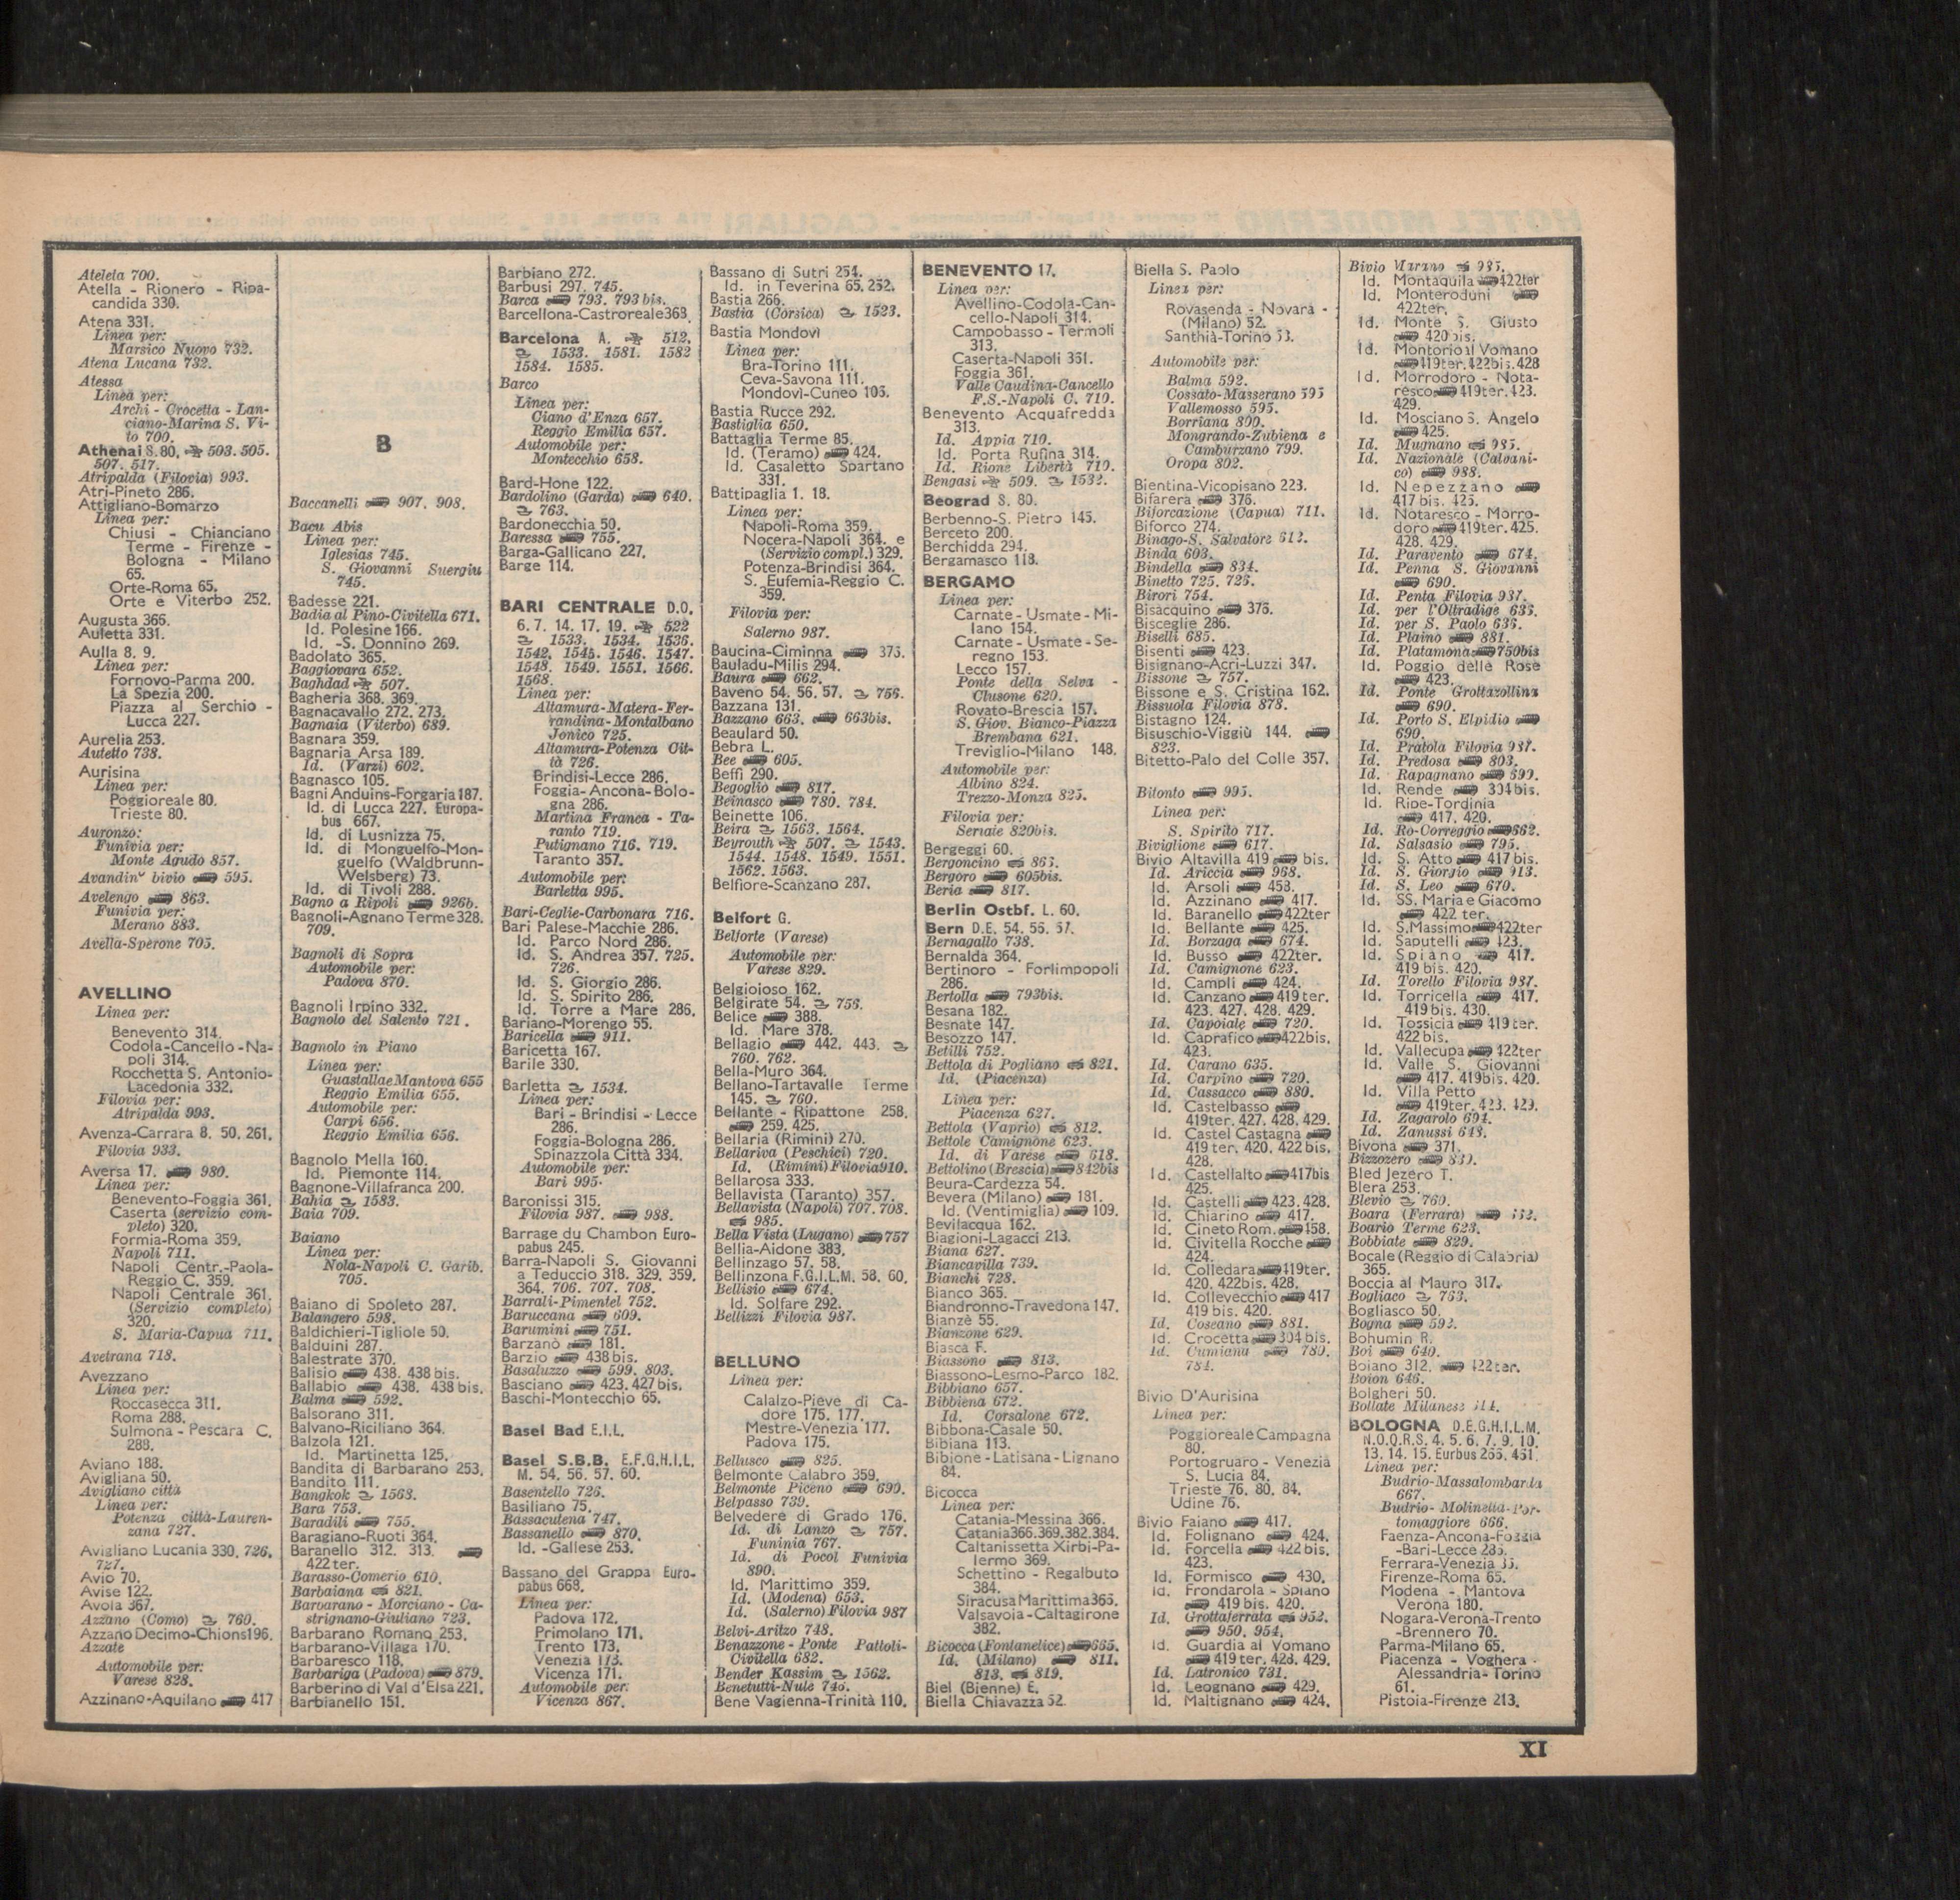 Ateleta 700.
Atella - Rionero - Ripa-
candida 330.
Atena 331.
Linea per:
Marsico Nuovo 732.
Atena Lucana 732.
Atessa
Linea per:
Archi - Crocetta - Lan-
ciano-Marina S. Vi-
to 700.
Athenai S. 80. 503. 505.
507. 517.
Atripalda (Filovia) 993.
Atri-Pineto 286.
Attigliano-Bomarzo
Linea per:
Chiusi - Chianciano
Terme - Firenze -
Bologna - Milano
65.
Orte-Roma 65.
Orte e Viterbo 252.
Augusta 366.
Auletta 331.
Aulla 8. 9.
Linea per:
Fornovo-Parma 200.
La Spezia 200.
Piazza al Serchio -
Lucca 227.
Aurelia 253.
Autetto 738.
Aurisina
Linea per:
Poggioreale 80.
Trieste 80.
Auronzo:
Funivia per:
Monte Agudo 857.
Avandin bivio 595.
Avelengo 863.
Funivia per:
Merano 883.
Avella-Sperone 705.
AVELLINO
Linea per:
Benevento 314.
Codola-Cancello-Na-
poli 314.
Rocchetta S. Antonio-
Lacedonia 332.
Filovia per:
Atripalda 993.
Avenza-Carrara 8. 50. 261.
Filovia 933.
Aversa 17. 980.
Linea per:
Benevento-Foggia 361.
Caserta (servizio com-
pleto) 320.
Formia-Roma 359.
Napoli 711.
Napoli Centr.-Paola-
Reggio C. 359.
Napoli Centrale 361.
(Servizio completo)
320.
S. Maria-Capua 711.
Avetrana 718.
Avezzano
Linea per:
Roccasecca 311.
Roma 288.
Sulmona - Pescara C.
288.
Aviano 188.
Avigliana 50.
Avigliano città
Linea per:
Potenza città-Lauren-
zana 727.
Avigliano Lucania 330. 726.
727.
Avio 70.
Avise 122.
Avola 367.
Azzano (Como) 760.
Azzano Decimo-Chions 196.
Azzate
Automobile per:
Varese 828.
Azzinano-Aquilano 417
B
Baccanelli 907. 908.
Bacu Abis
Linea per:
Iglesias 745.
S. Giovanni Suergiu
745.
Badesse 221.
Badia al Pino-Civitella 671.
Id. Polesine 166.
Id. -S. Donnino 269.
Badolato 365.
Baggiovara 652.
Baghdad 507.
Bagheria 368. 369.
Bagnacavallo 272. 273.
Bagnaia (Viterbo) 689.
Bagnara 359.
Bagnaria Arsa 189.
Id. (Varzi) 602.
Bagnasco 105.
Bagni Anduins-Forgaria 187.
Id. di Lucca 227. Europa-
bus 667.
Id. di Lusnizza 75.
Id. di Monguelfo-Mon-
guelfo (Waldbrunn-
Welsberg) 73.
Id. di Tivoli 288.
Bagno a Ripoli 926b.
Bagnoli-Agnano Terme 328.
709.
Bagnoli di Sopra
Automobile per:
Padova 870.
Bagnoli Irpino 332.
Bagnolo del Salento 721.
Bagnolo in Piano
Linea per:
Guastalla e Mantova 655
Reggio Emilia 655.
Automobile per:
Carpi 656.
Reggio Emilia 656.
Bagnolo Mella 160.
Id. Piemonte 114.
Bagnone-Villafranca 200.
Bahia 1583.
Baia 709.
Baiano
Linea per:
Nola-Napoli C. Garib.
705.
Baiano di Spoleto 287.
Balangero 598.
Baldichieri-Tigliole 50.
Balduini 287.
Balestrate 370.
Balisio 438. 438 bis.
Ballabio 438. 438 bis.
Balma 592.
Balsorano 311.
Balvano-Riciliano 364.
Balzola 121.
Id. Martinetta 125.
Bandita di Barbarano 253.
Bandito 111.
Bangkok 1568.
Bara 753.
Baradili 755.
Baragiano-Ruoti 364.
Baranello 312. 313.
422 ter.
Barasso-Comerio 610.
Barbaiana 821.
Barbarano - Morciano - Ca-
strignano-Giuliano 723.
Barbarano Romano 253.
Barbarano-Villaga 170.
Barbaresco 118.
Barbariga (Padova) 879.
Barberino di Val d'Elsa 221.
Barbianello 151.
Barbiano 272.
Barbusi 297. 745.
Barca 793. 793 bis.
Barcellona-Castroreale 368.
Barcelona A. 512.
1533. 1581. 1582
1584. 1585.
Barco
Linea per:
Ciano d'Enza 657.
Reggio Emilia 657.
Automobile per:
Montecchio 658.
Bard-Hone 122.
Bardolino (Garda) 640.
763.
Bardonecchia 50.
Baressa 755.
Barga-Gallicano 227.
Barge 114.
BARI CENTRALE D.O.
6. 7. 14. 17. 19. 522
1533. 1534. 1536.
1542. 1545. 1546. 1547.
1548. 1549. 1551. 1566.
1568.
Linea per:
Altamura-Matera-Fer-
randina-Montalbano
Jonico 725.
Altamura-Potenza Cit-
tà 726.
Brindisi-Lecce 286.
Foggia-Ancona-Bolo-
gna 286.
Martina Franca - Ta-
ranto 719.
Putignano 716. 719.
Taranto 357.
Automobile per:
Barletta 995.
Bari-Ceglie-Carbonara 716.
Bari Palese-Macchie 286.
Id. Parco Nord 286.
Id. S. Andrea 357. 725.
726.
Id. S. Giorgio 286.
Id. S. Spirito 286.
Id. Torre a Mare 286.
Bariano-Morengo 55.
Baricella 911.
Baricetta 167.
Barile 330.
Barletta 1534.
Linea per:
Bari - Brindisi - Lecce
286.
Foggia-Bologna 286.
Spinazzola Città 334.
Automobile per:
Bari 995.
Baronissi 315.
Filovia 987. 988.
Barrage du Chambon Euro-
pabus 245.
Barra-Napoli S. Giovanni
a Teduccio 318. 329. 359.
364. 706. 707. 708.
Barrali-Pimentel 752.
Baruccana 609.
Barumini 751.
Barzanò 181.
Barzio 438 bis.
Basaluzzo 599. 803.
Basciano 423. 427 bis.
Baschi-Montecchio 65.
Basel Bad E.I.L.
Basel S.B.B. E.F.G.H.I.L.
M. 54. 56. 57. 60.
Basentello 726.
Basiliano 75.
Bassacutena 747.
Bassanello 870.
Id. -Gallese 253.
Bassano del Grappa Euro-
pabus 668.
Linea per:
Padova 172.
Primolano 171.
Trento 173.
Venezia 173.
Vicenza 171.
Automobile per:
Vicenza 867.
Bassano di Sutri 254.
Id. in Teverina 65. 252.
Bastia 266.
Bastia (Corsica) 1523.
Bastia Mondovì
Linea per:
Bra-Torino 111.
Ceva-Savona 111.
Mondovì-Cuneo 105.
Bastia Rucce 292.
Bastiglia 650.
Battaglia Terme 85.
Id. (Teramo) 424.
Id. Casaletto Spartano
331.
Battipaglia 1. 18.
Linea per:
Napoli-Roma 359.
Nocera-Napoli 364. e
(Servizio compl.) 329.
Potenza-Brindisi 364.
S. Eufemia-Reggio C.
359.
Filovia per:
Salerno 987.
Baucina-Ciminna 375.
Bauladu-Milis 294.
Baura 662.
Baveno 54. 56. 57. 756.
Bazzana 131.
Bazzano 663. 663bis.
Beaulard 50.
Bebra L.
Bee 605.
Beffi 290.
Begoglio 817.
Beinasco 780. 784.
Beinette 106.
Beira 1563. 1564.
Beyrouth 507. 1543.
1544. 1548. 1549. 1551.
1562. 1563.
Belfiore-Scanzano 287.
Belfort G.
Belforte (Varese)
Automobile per:
Varese 829.
Belgioioso 162.
Belgirate 54. 756.
Belice 388.
Id. Mare 378.
Bellagio 442. 443.
760. 762.
Bella-Muro 364.
Bellano-Tartavalle Terme
145. 760.
Bellante - Ripattone 258.
259. 425.
Bellaria (Rimini) 270.
Bellariva (Peschici) 720.
Id. (Rimini) Filovia 910.
Bellarosa 333.
Bellavista (Taranto) 357.
Bellavista (Napoli) 707. 708.
985.
Bella Vista (Lugano) 757
Bellia-Aidone 383.
Bellinzago 57. 58.
Bellinzona F.G.I.L.M. 58. 60.
Bellisio 674.
Id. Solfare 292.
Bellizzi Filovia 987.
BELLUNO
Linea per:
Calalzo-Pieve di Ca-
dore 175. 177.
Mestre-Venezia 177.
Padova 175.
Bellusco 825.
Belmonte Calabro 359.
Belmonte Piceno 690.
Belpasso 739.
Belvedere di Grado 176.
Id. di Lanzo 757.
Funinia 767.
Id. di Pocol Funivia
890.
Id. Marittimo 359.
Id. (Modena) 653.
Id. (Salerno) Filovia 987
Belvì-Aritzo 748.
Benazzone - Ponte Pattoli-
Civitella 682.
Bender Kassim 1562.
Benetutti-Nule 746.
Bene Vagienna-Trinità 110.
BENEVENTO 17.
Linea per:
Avellino-Codola-Can-
cello-Napoli 314.
Campobasso - Termoli
313.
Caserta-Napoli 361.
Foggia 361.
Valle Caudina-Cancello
F.S.-Napoli C. 710.
Benevento Acquafredda
313.
Id. Appia 710.
Id. Porta Rufina 314.
Id. Rione Libertà 710.
Bengasi 509. 1532.
Beograd S. 80.
Berbenno-S. Pietro 145.
Berceto 200.
Berchidda 294.
Bergamasco 118.
BERGAMO
Linea per:
Carnate - Usmate - Mi-
lano 154.
Carnate - Usmate - Se-
regno 153.
Lecco 157.
Ponte della Selva -
Clusone 620.
Rovato-Brescia 157.
S. Giov. Bianco-Piazza
Brembana 621.
Treviglio-Milano 148.
Automobile per:
Albino 824.
Trezzo-Monza 825.
Filovia per:
Seriate 820bis.
Bergeggi 60.
Bergoncino 865.
Bergoro 605bis.
Beria 817.
Berlin Ostbf. L. 60.
Bern D.E. 54. 56. 57.
Bernagallo 738.
Bernalda 364.
Bertinoro - Forlimpopoli
286.
Bertolla 793bis.
Besana 182.
Besnate 147.
Besozzo 147.
Betilli 752.
Bettola di Pogliano 821.
Id. (Piacenza)
Linea per:
Piacenza 627.
Bettola (Vaprio) 812.
Bettole Camignone 623.
Id. di Varese 618.
Bettolino (Brescia) 842bis
Beura-Cardezza 54.
Bevera (Milano) 181.
Id. (Ventimiglia) 109.
Bevilacqua 162.
Biagioni-Lagacci 213.
Biana 627.
Biancavilla 739.
Bianchi 728.
Bianco 365.
Biandronno-Travedona 147.
Bianzè 55.
Bianzone 629.
Biasca F.
Biassono 813.
Biassono-Lesmo-Parco 182.
Bibbiano 657.
Bibbiena 672.
Id. Corsalone 672.
Bibbona-Casale 50.
Bibiana 113.
Bibione - Latisana - Lignano
84.
Bicocca
Linea per:
Catania-Messina 366.
Catania 366. 369. 382. 384.
Caltanissetta Xirbi-Pa-
lermo 369.
Schettino - Regalbuto
384.
Siracusa Marittima 365.
Valsavoia-Caltagirone
382.
Bicocca (Fontanelice) 665.
Id. (Milano) 811.
813. 819.
Biel (Bienne) E.
Biella Chiavazza 52.
Biella S. Paolo
Linea per:
Rovasenda - Novara -
(Milano) 52.
Santhià-Torino 53.
Automobile per:
Balma 592.
Cossato-Masserano 595
Vallemosso 595.
Borriana 800.
Mongrando-Zubiena e
Camburzano 799.
Oropa 802.
Bientina-Vicopisano 223.
Bifarera 376.
Biforcazione (Capua) 711.
Biforco 274.
Binago-S. Salvatore 612.
Binda 603.
Bindella 834.
Binetto 725. 726.
Birori 754.
Bisacquino 376.
Bisceglie 286.
Biselli 685.
Bisenti 423.
Bisignano-Acri-Luzzi 347.
Bissone 757.
Bissone e S. Cristina 162.
Bissuola Filovia 878.
Bistagno 124.
Bisuschio-Viggiù 144.
823.
Bitetto-Palo del Colle 357.
Bitonto 995.
Linea per:
S. Spirito 717.
Biviglione 617.
Bivio Altavilla 419 bis.
Id. Ariccia 968.
Id. Arsoli 458.
Id. Azzinano 417.
Id. Baranello 422ter
Id. Bellante 425.
Id. Borzaga 674.
Id. Busso 422ter.
Id. Camignone 623.
Id. Campli 424.
Id. Canzano 419 ter.
423. 427. 428. 429.
Id. Capoiale 720.
Id. Caprafico 422bis.
423.
Id. Carano 635.
Id. Carpino 720.
Id. Cassacco 880.
Id. Castelbasso
419ter. 427. 428. 429.
Id. Castel Castagna
419 ter. 420. 422 bis.
428.
Id. Castellalto 417bis
425.
Id. Castelli 423. 428.
Id. Chiarino 417.
Id. Cineto Rom. 158.
Id. Civitella Rocche
424.
Id. Colledara 419ter.
420. 422bis. 428.
Id. Collevecchio 417
419 bis. 420.
Id. Coseano 881.
Id. Crocetta 304 bis.
Id. Cumiana 780.
784.
Bivio D'Aurisina
Linea per:
Poggioreale Campagna
80.
Portogruaro - Venezia
S. Lucia 84.
Trieste 76. 80. 84.
Udine 76.
Bivio Faiano 417.
Id. Folignano 424.
Id. Forcella 422 bis.
423.
Id. Formisco 430.
Id. Frondarola - Spiano
419 bis. 420.
Id. Grottaferrata 952.
950. 954.
Id. Guardia al Vomano
419 ter. 428. 429.
Id. Latronico 731.
Id. Leognano 429.
Id. Maltignano 424.
Bivio Marano 985.
Id. Montaquila 422ter
Id. Monteroduni
422ter.
Id. Monte S. Giusto
420 bis.
Id. Montorio al Vomano
419ter. 422bis. 428
Id. Morrodoro - Nota-
resco 419ter. 423.
429.
Id. Mosciano S. Angelo
425.
Id. Mugnano 985.
Id. Nazionale (Calvani-
co) 988.
Id. Nepezzano
417 bis. 425.
Id. Notaresco - Morro-
doro 419ter. 425.
428. 429.
Id. Paravento 674.
Id. Penna S. Giovanni
690.
Id. Penta Filovia 987.
Id. per l'Oltradige 635.
Id. per S. Paolo 635.
Id. Plaino 881.
Id. Platamona 750bis
Id. Poggio delle Rose
423.
Id. Ponte Grottazolina
690.
Id. Porto S. Elpidio
690.
Id. Pratola Filovia 987.
Id. Predosa 803.
Id. Rapagnano 690.
Id. Rende 304bis.
Id. Ripe-Tordinia
417. 420.
Id. Ro-Correggio 662.
Id. Salsasio 795.
Id. S. Atto 417 bis.
Id. S. Giorgio 913.
Id. S. Leo 670.
Id. SS. Maria e Giacomo
422 ter.
Id. S. Massimo 422ter
Id. Saputelli 423.
Id. Spiano 417.
419 bis. 420.
Id. Torello Filovia 987.
Id. Torricella 417.
419 bis. 430.
Id. Tossicia 419 ter.
422 bis.
Id. Vallecupa 422ter
Id. Valle S. Giovanni
417. 419bis. 420.
Id. Villa Petto
419ter. 423. 429.
Id. Zagarolo 694.
Id. Zanussi 648.
Bivona 371.
Bizzozero 830.
Bled Jezero T.
Blera 253.
Blevio 760.
Boara (Ferrara)
Boario Terme 623.
Bobbiate 829.
Bocale (Reggio di Calabria)
365.
Boccia al Mauro 317.
Bogliaco 763.
Bogliasco 50.
Bogna 592.
Bohumin R.
Boi 640.
Boiano 312. 422 ter.
Boion 646.
Bolgheri 50.
Bollate Milanese
BOLOGNA D.E.G.H.I.L.M.
N.O.Q.R.S. 4. 5. 6. 7. 9. 10.
13. 14. 15. Eurbus 266. 451.
Linea per:
Budrio-Massalombarda
667.
Budrio-Molinella-Por-
tomaggiore 666.
Faenza-Ancona-Foggia
-Bari-Lecce 286.
Ferrara-Venezia 85.
Firenze-Roma 65.
Modena - Mantova
Verona 180.
Nogara-Verona-Trento
-Brennero 70.
Parma-Milano 65.
Piacenza - Voghera -
Alessandria-Torino
61.
Pistoia-Firenze 213.
XI